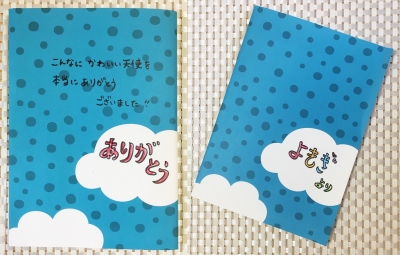 こんなに かわいい天使を
本当に ありがとう
ございました!!
ありが
とう
よもぎ
より